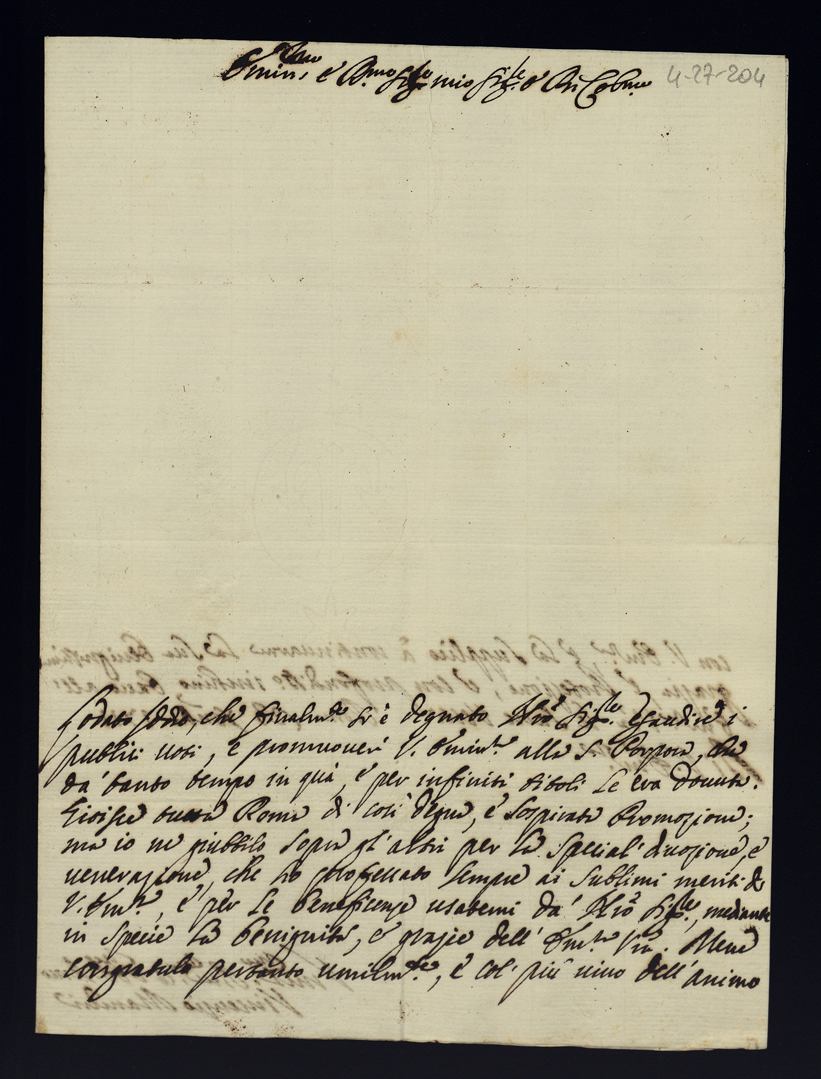 Emin.mo e R.mo Sig.re mio Sig.re e Pn Colmo
4-27-204
Lodato Iddio, che finalm.te si è degnato N̄rō Sig.re esaudire i
publici uoti, e promuouere V. Emin.za alla S. Porpora, che
da' tanto tempo in quà, e' per infiniti titoli Le era douuta.
Gioisce tutta Roma di così degna, e' sospirata Promozione;
ma io ne giubbilo sopra gl'altri per la special' diuozione, e
uenerazione, che ho professato sempre ai sublimi meriti di
V. Em.za, e' per le beneficenze usatemi da' N̄rō Sig.re, mediante
in specie la benignità, e' grazie dell' Em.za Vra. Mene
congratulo pertanto umilm.te, e' col' più uiuo dell'animo